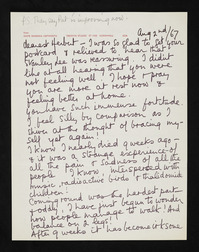 P.S. They say Pat is improving now.
Aug 2nd/67
dearest Herbert – I was so glad to get your
postcard & relieved to hear that
Stanley Lee was recovering. I didn't
like at all hearing that you were
not feeling well. I hope & pray
you are more at rest now &
feeling better at home.
You have such immense fortitude.
I feel silly by comparison as I
think at the thought of bracing my-
self yet again.
I know I nearly died weeks ago –
& it was a strange experience of
all the pain & sadness of all the
people I know interspersed with
music, radioactive birds & thalidomide
children!
Coming round was the hardest part
& oddly I have just begun to wonder
how people manage to walk! And
balance on 2 legs!
After 9 weeks it has become at some